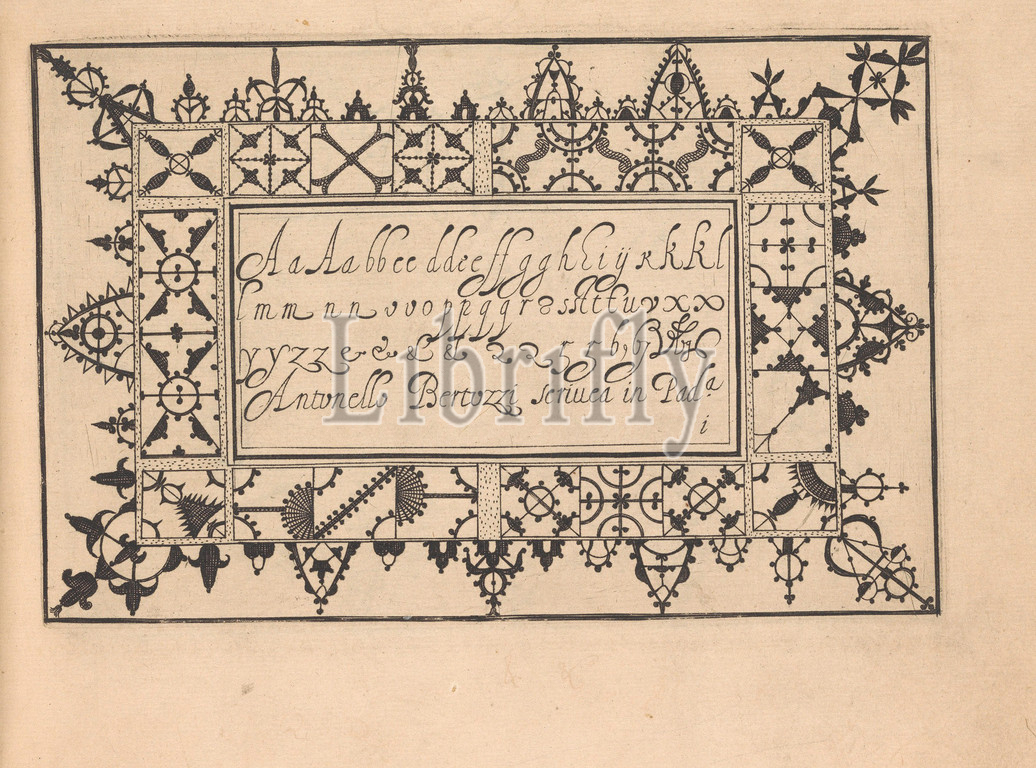 A a A a b b c c d d e e f f g g h h i ij k k k l
l m m n n v v o o p p q q r ꝛ s s t t f u v x x
y y z z & & & & 2 2 5 5 b; 
Antonello Bertozzi scriuea in Pad.ª
i
Librifly